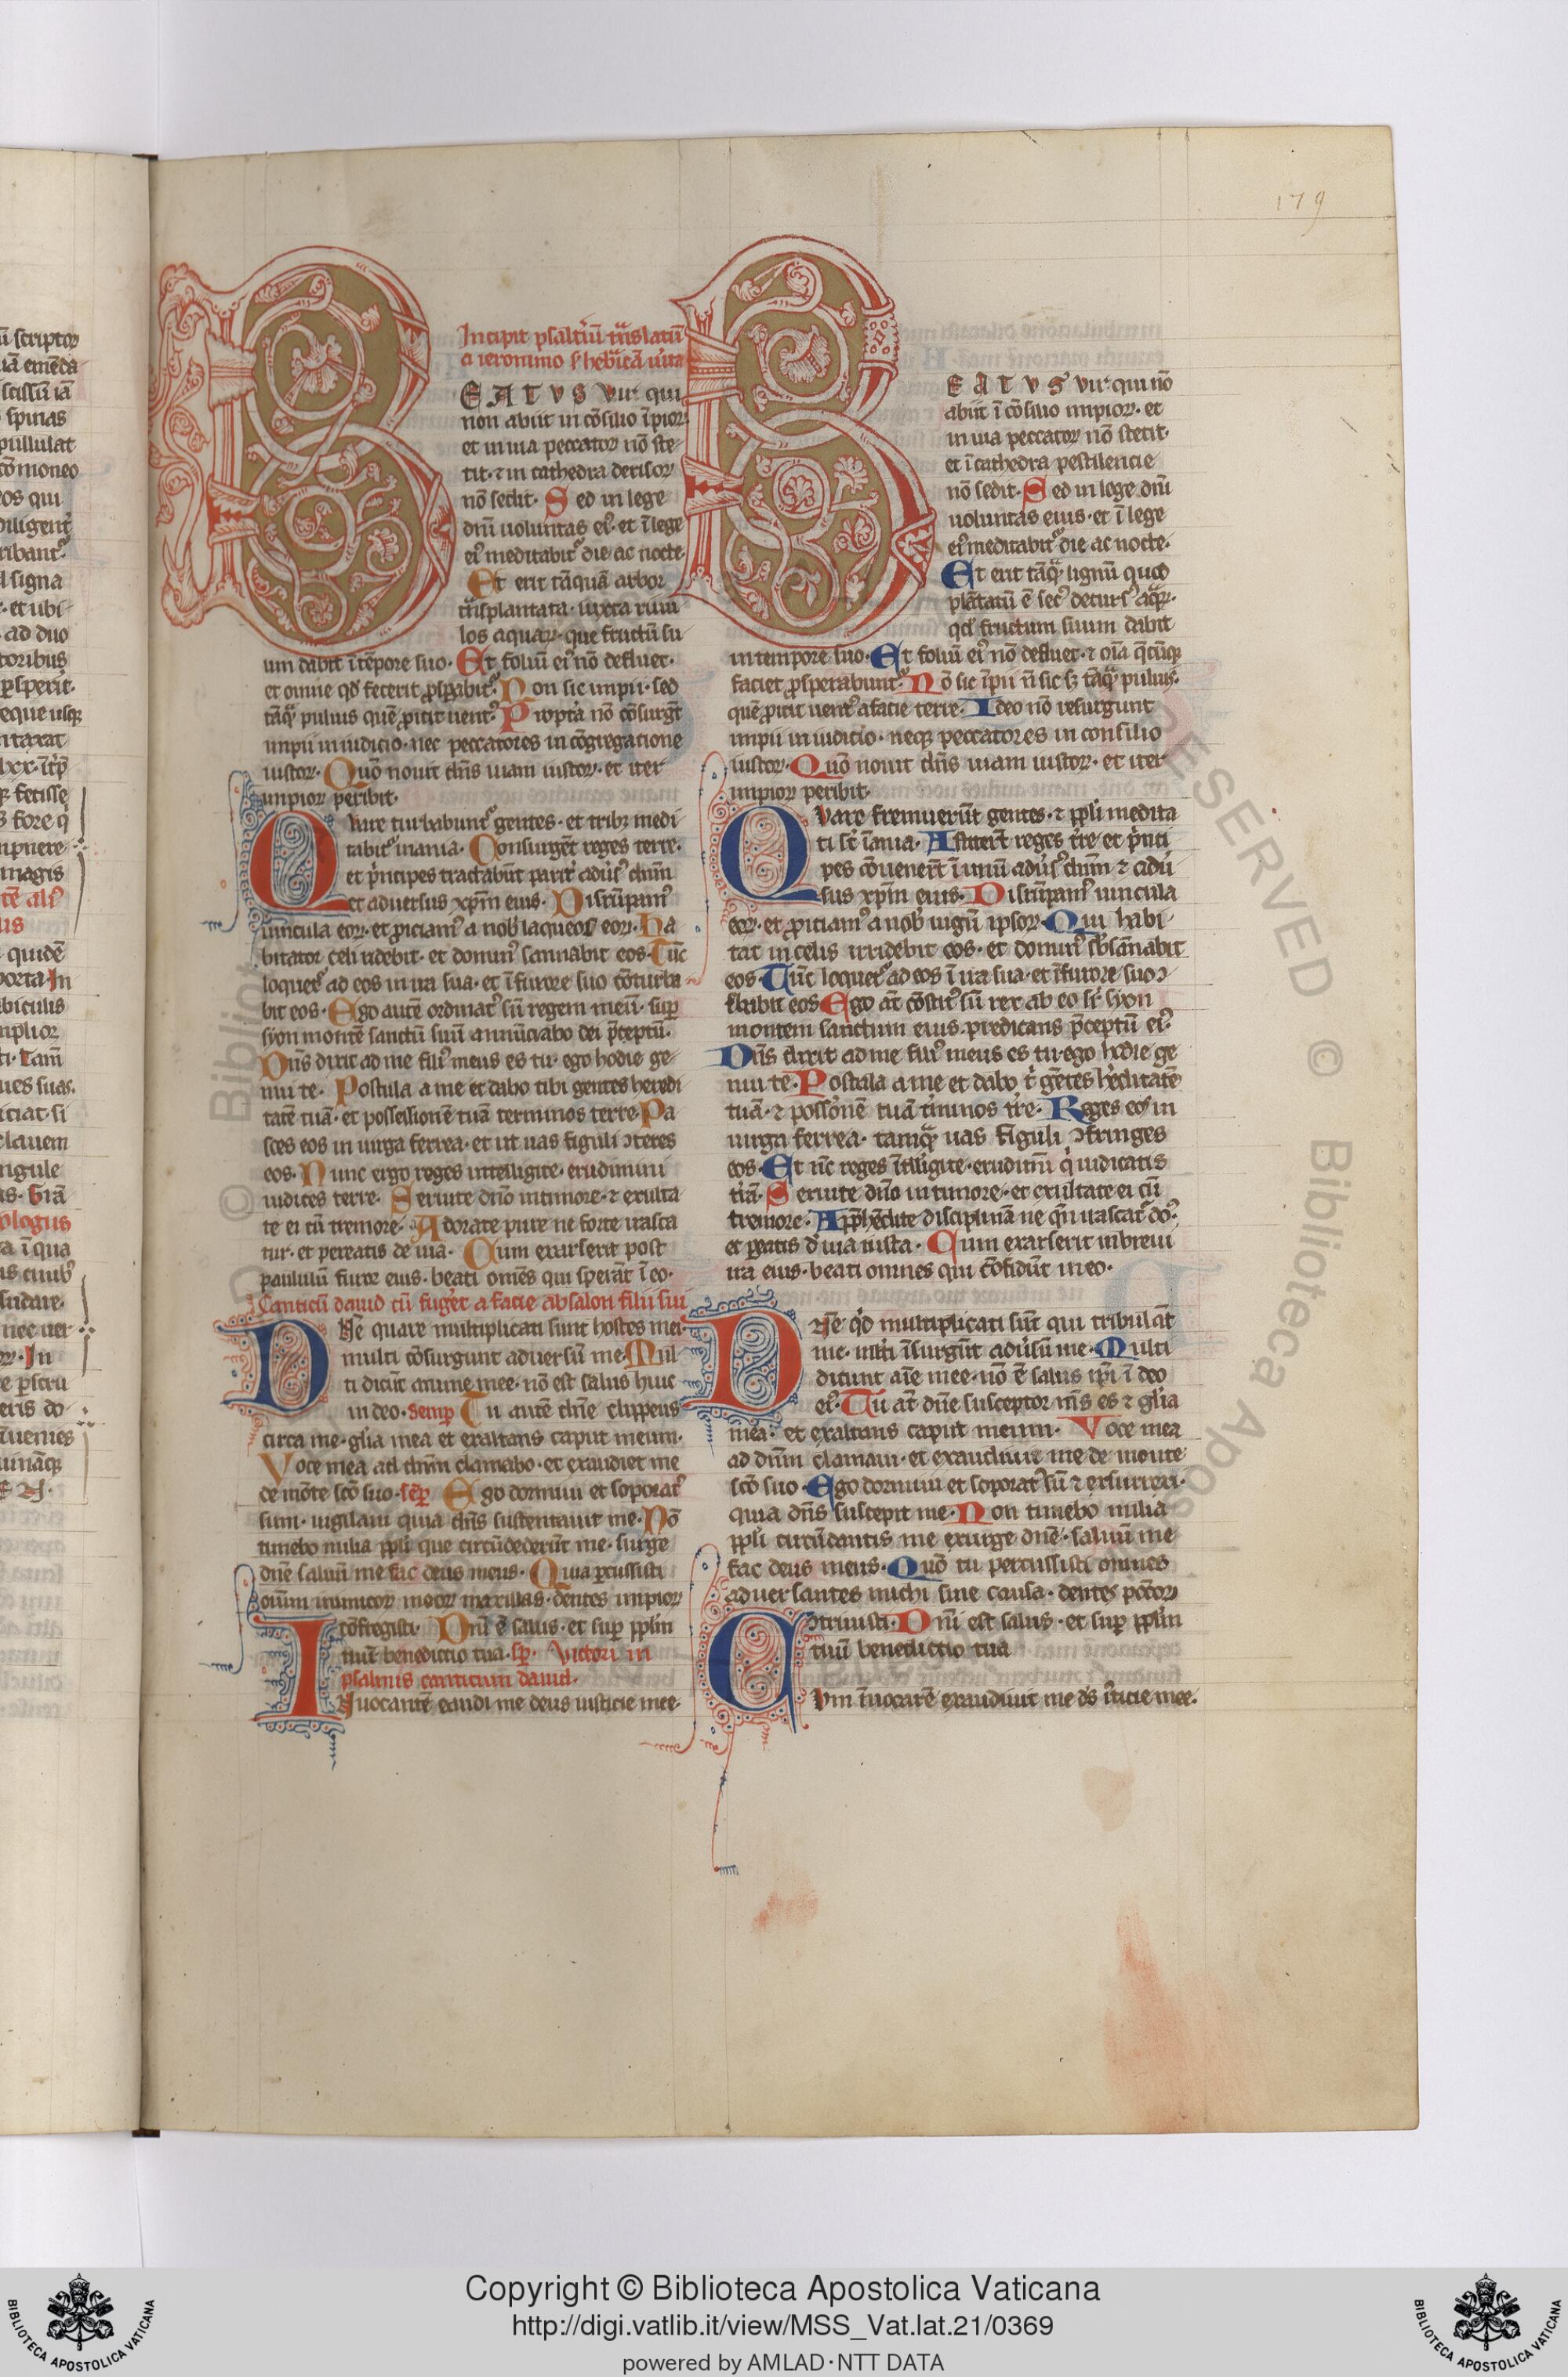 scriptor
spinas
pullulat
eos qui
signa
et ubi
ad duo
toribus
magis
lus
quidē
In
biculis
mplior
clauem
ngule
ologus
179
Incipit psaltiū t̄nslatū
a ieronimo
EATVS vir qui
non abiit in cōsilio īpior̄
et in uia peccatorꝝ nō ste
tit· ⁊ in cathedra derisorꝝ
nō sedit· Sed in lege
dnī uoluntas eiꝰ· et ī lege
eiꝰ meditabit᷒ die ac nocte·
Et erit tāquā arbor
t̄nsplantata· iuxta riuu
los aquarꝝ· que fructū su
um dabit ī tēpore suo· Et foliū eiꝰ nō defluet·
et omne qd̄ fecerit ꝓsꝑabit᷒· Non sic impii· sed
tāq̄ puluis quē ꝓicit uentꝰ· Propt̾a nō cōsurgēt
impii in iudicio· nec peccatores in cōgregatione
iustorꝝ· Quō nouit dn̄s uiam iustorꝝ· et iter
impiorꝝ peribit·
Qvare turbabunt᷒ gentes· et tribꝫ medi
tabūt᷒ inania· Consurgēt reges terre·
et p̄ncipes tractabūt parit̾ adūsꝰ dnm̄
et aduersus xpm̄ eius· Disrūpamꝰ
uincula eorꝝ· et ꝓiciamꝰ a nobꝭ laqueos eorꝝ· Ha
bitator celi ridebit· et dominꝰ sannabit eos· Tūc
loquet᷒ ad eos in ira sua· et ī furore suo cōturba
bit eos· Ego autē ordinatꝰ sū regem meū· suꝑ
syon montē sanctū suū annūciabo dei p̄ceptū·
Dn̄s dixit ad me filiꝰ meus es tu· ego hodie ge
nui te· Postula a me et dabo tibi gentes heredi
tatē tuā· et possessionē tuā terminos terre· Pa
sces eos in uirga ferrea· et ut uas figuli ꝯteres
eos· Nunc ergo reges intelligite· erudimini
iudices terre· Seruite dn̄o in timore· ⁊ exulta
te ei cū tremore· Adorate pure ne forte irasca
tur· et pereatis de uia· Cum exarserit post
paululū furor eius· beati om̄es qui sperāt ī eo·
Canticū dauid cū fuger̄t a facie absalon filii sui
DNē quare multiplicati sunt hostes mei·
multi cōsurgunt aduersū me· Mul
ti dicūt anime mee· nō est salus huic
in deo· semꝑ Tu autē dn̄e clippeus
circa me· glīa mea et exaltans caput meum·
Voce mea ad dnm̄ clamabo· et exaudiet me
de mōte scō suo· sēꝑ Ego dormiui et soporatꝰ
sum· uigilaui quia dn̄s sustentauit me· Nō
timebo milia ppl̄i que circūdederūt me· surge
dn̄e saluū me fac deus meus· Quia ꝑcussisti
oīum inimicorꝝ meorꝝ maxillas· dentes impiorꝝ
cōfregisti· Dn̄i ē salus· et suꝑ ppl̄m
tuū benedictio tua· sꝑ· Victori in
psalmis canticum dauid·
INuocantē exaudi me deus iusticie mee·
BEATVS vir qui nō
abiit ī cōsilio impiorꝝ· et
in uia peccatorꝝ nō stetit·
et ī cathedra pestilencie
nō sedit· Sed in lege dnī
uoluntas eius· et ī lege
eiꝰ meditabit᷒ die ac nocte·
Et erit tāq̄ lignū quod
plātatū ē secꝰ decursꝰ aq̄rꝝ·
qd̄ fructum suum dabit
in tempore suo· Et foliū eiꝰ nō defluet· ⁊ oīa q̄cūqꝫ
faciet ꝓsperabunt᷒· Nō sic īpii n̄ sic sꝫ tāq̄ puluis·
quē ꝓicit uentꝰ a facie terre· Ideo nō resurgunt
impii in iuditio· neqꝫ peccatores in consilio
iustorꝝ· Quō nouit dn̄s uiam iustorꝝ· et iter
impiorꝝ peribit·
Qvare fremuerūt gentes· ⁊ ppl̄i medita
ti sūt īania· Astiterūt reges tr̄e et p̄nci
pes cōuenerūt ī unū adūsꝰ dnm̄ ⁊ adū
sus xpm̄ eius· Disrūpamꝰ uincula
eorꝝ· et ꝓiciamꝰ a nobꝭ iugū ipsorꝝ· Qui habi
tat in celis irridebit eos· et dominꝰ sb̄sānabit
eos· Tūc loquet᷒ ad eos ī ira sua· et ī furore suo ꝯ
t̄babit eos Ego āt cōstitꝰ sū rex ab eo sr̄ syon
montem sanctum eius· predicans p̄ceptū eiꝰ·
Dn̄s dixit ad me filiꝰ meus es tu· ego hodie ge
nui te· Postula a me et dabo t̄ gētes h̾editatē
tuā· ⁊ possōnē tuā t̾minos tr̄e· Reges eos in
uirga ferrea· tamq̄ uas figuli ꝯfringes
eos· Et nc̄ reges ītelligite· erudimī q̄ iudicatis
t̾rā· Seruite dn̄o in timore· et exultate ei cū
tremore· App̄hēdite disciplinā ne qn̄ irascat᷒ dō·
et ꝑeatis d̾ uia iusta· Cum exarserit in breui
ira eius· beati omnes qui cōfidūt in eo·
DNē q̄d multiplicati sūt qui tribulāt
me· ml̄ti īsurgūt adūsū me· Multi
dicunt aīe mee· nō ē salus ip̄i ī deo
eiꝰ· Tu āt dn̄e susceptor m̄s es ⁊ glīa
mea· et exaltans caput meum· Voce mea
ad dnm̄ clamaui· et exaudiuit me de monte
scō suo· Ego dormiui et soporatꝰ sū ⁊ exsurrexi·
quia dn̄s suscepit me· Non timebo milia
ppl̄i circūdantis me exurge dn̄e· saluū me
fac deus meus· Quō tu percussisti omnes
aduersantes michi sine causa· dentes pctōrꝝ
ꝯtriuisti· Dn̄i est salus· et suꝑ ppl̄m
tuū benedictio tua
CVm īuocarē exaudiuit me dꝰs iusticie mee·
Copyright © Biblioteca Apostolica Vaticana
http://digi.vatlib.it/view/MSS_Vat.lat.21/0369
powered by AMLAD·NTT DATA
BIBLIOTECA APOSTOLICA VATICANA
BIBLIOTECA APOSTOLICA VATICANA